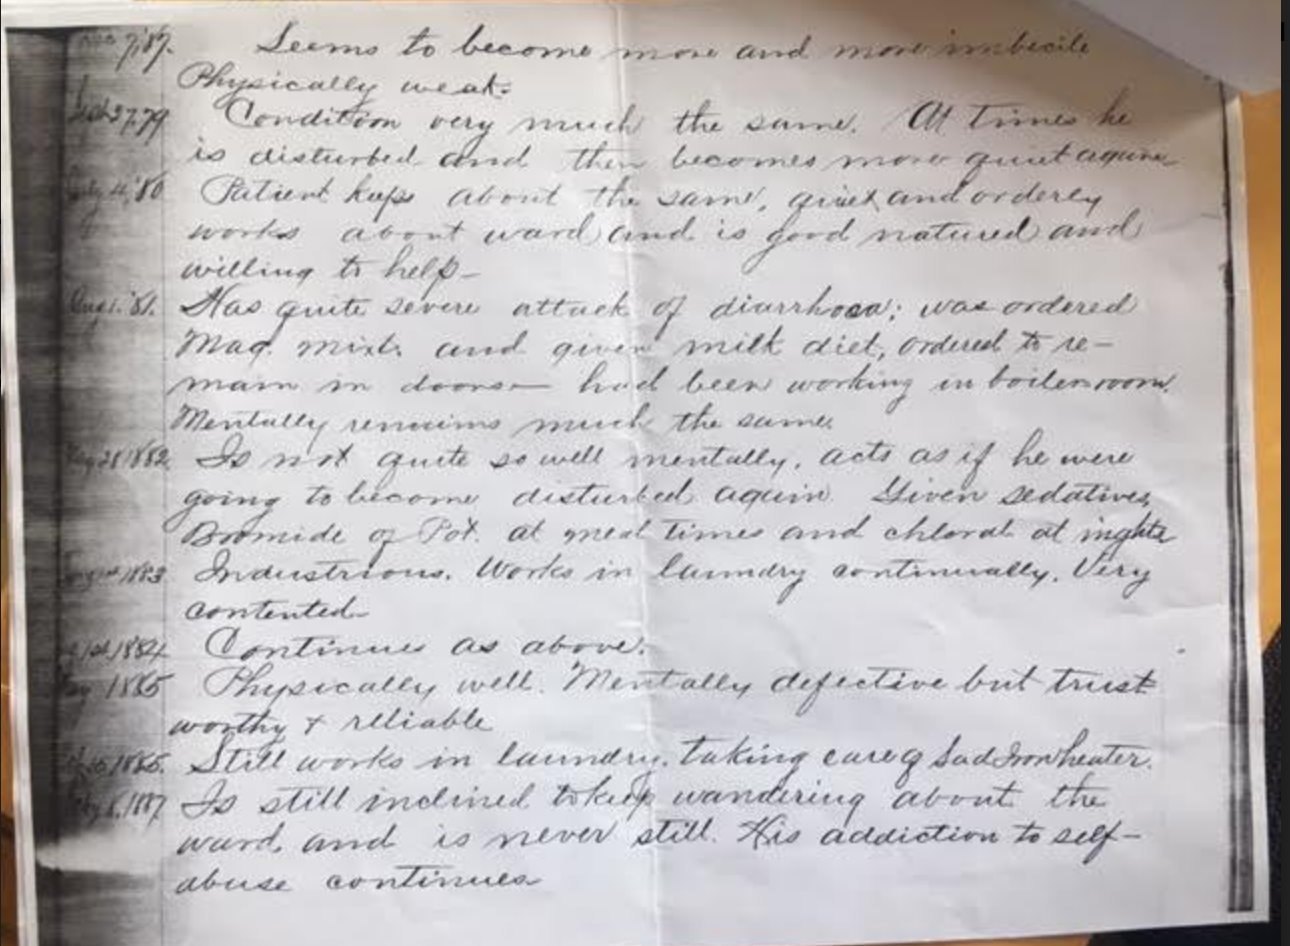 7, '87. Seems to become more and more imbecile
Physically weak.
27, 79 Condition very much the same. At times he
is disturbed and then becomes more quiet again
July 4, '80 Patient keeps about the same, quiet and orderly
works about ward and is good natured and
willing to help—
Aug 1. '81. Has quite severe attack of diarrhoea; was ordered
Mag. mixt. and given milk diet, ordered to re-
main in doors— had been working in boiler room.
Mentally remains much the same.
28 1882 Is not quite so well mentally, acts as if he were
going to become disturbed again. Given sedatives,
Bromide of Pot. at meal times and chloral at inghts
1883 Industrious. Works in laundry continually. Very
contented—
1st, 1884 Continues as above.
1885 Physically well. Mentally defective but trust
worthy & reliable
1886. Still works in laundry, taking care of Sad Iron heater.
1887 Is still inclined to keep wandering about the
ward, and is never still. His addiction to self-
abuse continues